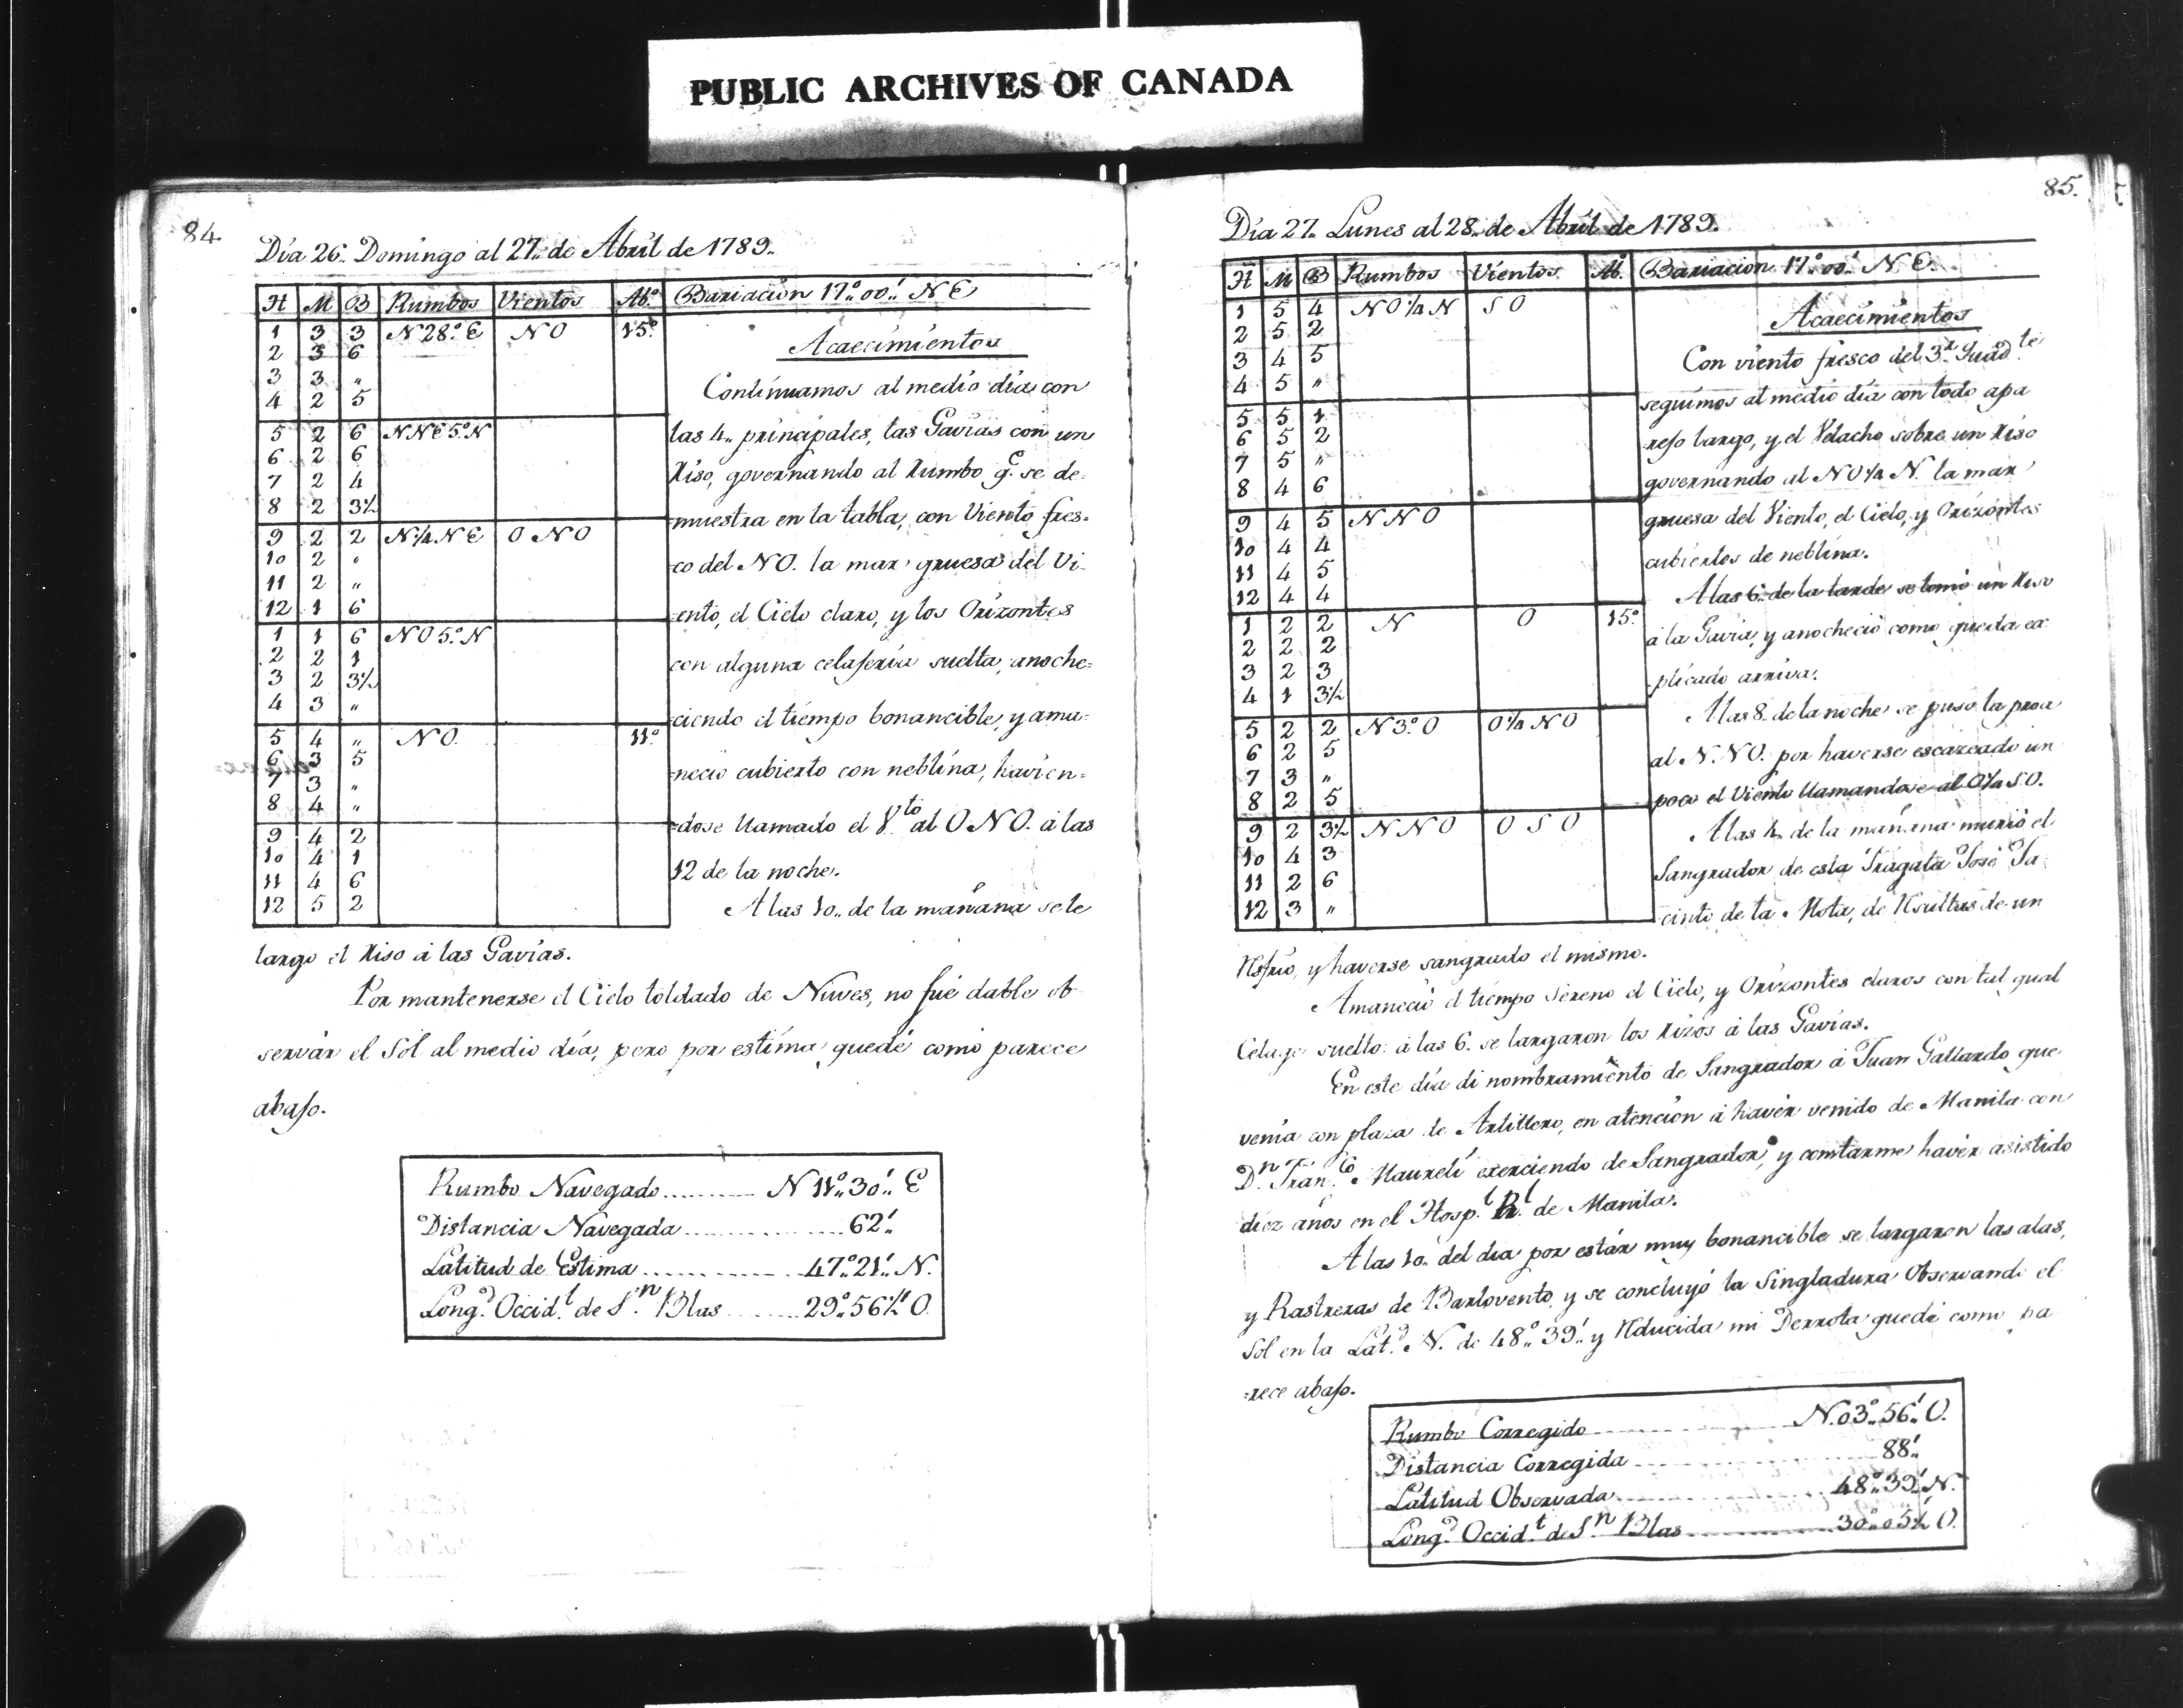 PUBLIC ARCHIVES OF CANADA
84.
Día 26., Domíngo al 27., de Abríl de 1789.,
H M B Rumbos Vientos Ab.º Bariación 17.,º00.,' N E
1 3 3 N 28.º E N O 15.º
2 3 6
3 3 "
4 2 5
5 2 6 N N E 5.º N
6 2 6
7 2 4
8 2 3½
9 2 2 N ¼ N E O N O
10 2 "
11 2 "
12 1 6
1 1 6 N O 5.º N
2 2 1
3 2 3½
4 3 "
5 4 " N O. 11.º
6 3 5
7 3 "
8 4 "
9 4 2
10 4 1
11 4 6
12 5 2
Acaecímientos
Contínuamos al medío día con
las 4., príncipales, las Gavías con un
Riso, governando al Rumbo q.e se de-
-muestra en la tabla, con Viento fres-
-co del N O. la mar gruesa del Vi-
-ento, el Cielo claro, y los Orízontes
con alguna celajería suelta, anoche=
-ciendo el tiempo bonancible, y ama=
-necío cubierto con neblína, havíen=
-dose llamado el V.to al O N O. á las
12 de la noche.
A las 10., de la mañana se le
largo el Riso á las Gavías.
Por mantenerse el Cielo toldado de Nuves, no fué dable ob
servár el Sól al medio día, pero por estíma quedé como parece
abajo.
Rumbo Navegado .......... N 11.,º30.,' E
Distancia Navegada .......... 62.,'
Latitud de Estima .......... 47.,º21.,' N.
Long.d Occid.l de S.n Blas .......... 29.,º56½' O.
85.
Día 27., Lunes al 28., de Abríl de 1789.
H M B Rumbos Vientos Ab.º Bariación 17.,º00.,' N E.
1 5 4 N O ¼ N S O
2 5 2
3 4 5
4 5 "
5 5 1
6 5 2
7 5 "
8 4 6
9 4 5 N N O
10 4 4
11 4 5
12 4 4
1 2 2 N O 15.º
2 2 2
3 2 3
4 1 3½
5 2 2 N 3.º O O ¼ N O
6 2 5
7 3 "
8 2 5
9 2 3½ N N O O S O
10 4 3
11 2 6
12 3 "
Acaecímíentos
Con viento fresco del 3.r Quad.te
seguímos al medio día con todo apa
rejo largo, y el Velacho sobre un Riso
governando al N O ¼ N. la mar
gruesa del Viento, el Cielo, y Orízontes
cubiertos de neblína.
A las 6., de la tarde se tomó un Riso
á la Gavia, y anocheció como queda ex
plicado arriva.
A las 8. de la noche se puso la proa
al N. N O. por haverse escaceado un
poco el Viento llamandose al O ¼ S O.
A las 4., de la mañana murió el
Sangrador de esta Fragata José Ja
cinto de la Mota, de Resultas de un
Resfrio, y haverse sangrado el mismo.
Amaneció el tiempo sereno el Cielo, y Orízontes claros con tal qual
Celage suelto: á las 6. se largaron los Rizos á las Gavías.
En este día di nombramiento de Sangrador á Juan Gallardo que
venía con plaza de Artillero, en atención á havér venido de Manila con
D.n Fran.co Maurelí exerciendo de Sangrador, y constarme havér asistido
diez años en el Hosp.l R.l de Manila.
A las 10., del dia por estár muy bonancible se largaron las alas,
y Rastreras de Barlovento, y se concluyó la Singladura Observando el
Sól en la Lat.d N. de 48.,º 39.,' y Reducida mi Derrota quedé como pa
-rece abajo.
Rumbo Corregido .......... N. 03.,º 56.,' O.
Distancia Corregida .......... 88.,'
Latitud Observada .......... 48.,º39.,' N.
Long.d Occid.l de S.n Blas .......... 30.,º05½' O.